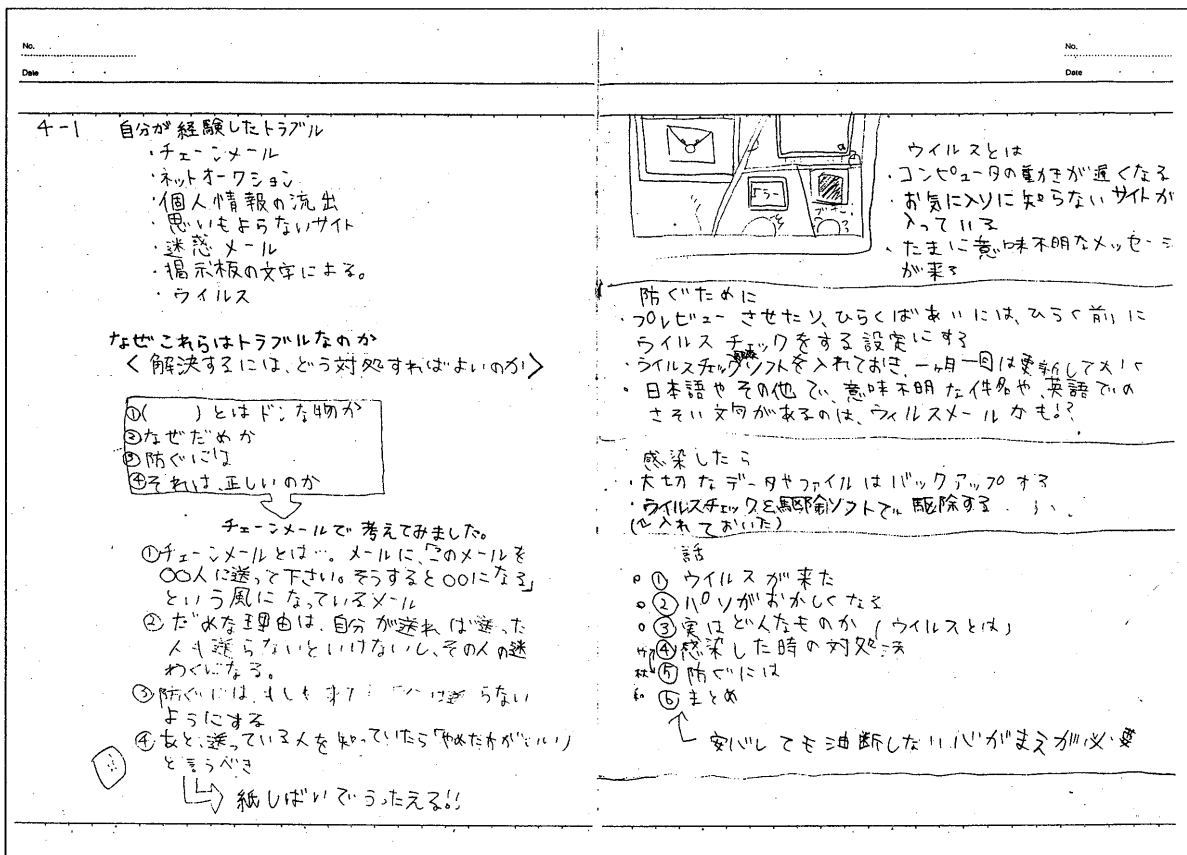 No.
Date
4-1 自分が経験したトラブル
・チェーンメール
・ネットオークション
・個人情報の流出
・思いもよらないサイト
・迷惑メール
・掲示板の文字による。
・ウイルス
なぜこれらはトラブルなのか
<解決するには、どう対処すればよいのか>
①( )とはドンな物か
②なぜだめか
③防ぐには
④それは、正しいのか
チェーンメールで考えてみました。
①チェーンメールとは…。メールに、「このメールを
○○人に送って下さい。そうすると○○になる」
という風になっているメール
②だめな理由は、自分が送れば送った
人も送らないといけないし、その人の迷
わくになる。
③防ぐには、もしも来ても
送らない
ようにする
④あと、送っている人を知っていたら「やめた方がいい」
と言うべき
紙しばいでうったえる!!
No.
Date
ウイルスとは
・コンピュータの動きが遅くなる
・お気に入りに知らないサイトが
入っている
・たまに意味不明なメッセージ
が来る
防ぐために
・プレビューさせたり、ひらくばあいには、ひらく前に
ウイルスチェックをする設定にする
・ウイルスチェックソフトを入れておき、一ヶ月一回は更新しておく
・日本語やその他で、意味不明な件名や、英語での
さそい文句があるのは、ウィルスメールかも!?
感染したら
・大切なデータやファイルはバックアップする
・ウイルスチェックと駆除ソフトで駆除する
(入れておいた)
話
①ウイルスが来た
②パソがおかしくなる
③実はどんなものか(ウイルスとは)
④感染した時の対処法
⑤防ぐには
⑥まとめ
安心しても油断しない心がまえが必要